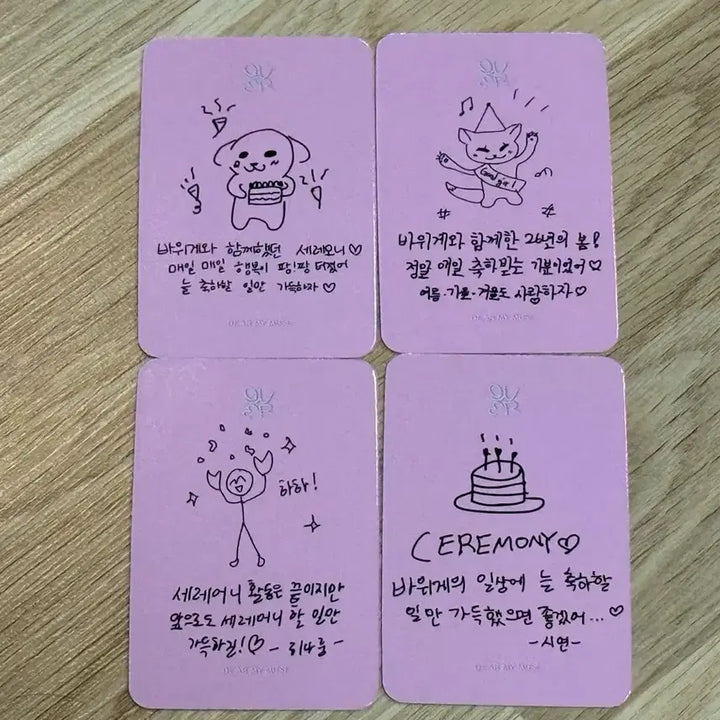 바위게와 함께했던 세레모니♡
매일 매일 행복이 팡!팡 터졌어
늘 축하할 일만 가득하자♡
DEAR MY MUSE
Good girl!
바위게와 함께한 26번의 봄!
정말 매일 축하받는 기분이었어♡
여름·가을·겨울도 사랑하자♡
DEAR MY MUSE
하하!
세레머니 활동은 끝이지만
앞으로도 세레머니 할 일만
가득하길!♡
DEAR MY MUSE
CEREMONY♡
바위게의 일상에 늘 축하할
일만 가득했으면 좋겠어...♡
-시연-